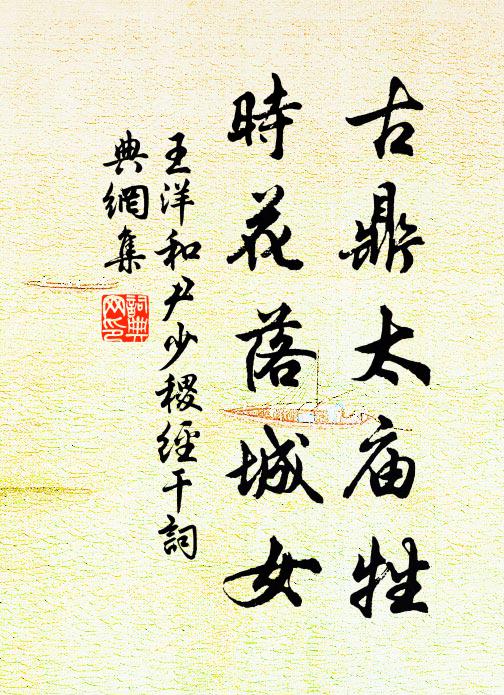 古鼎太庙牲
時花落城女
王洋和尹少稷經干詞
典網集
詞典网印